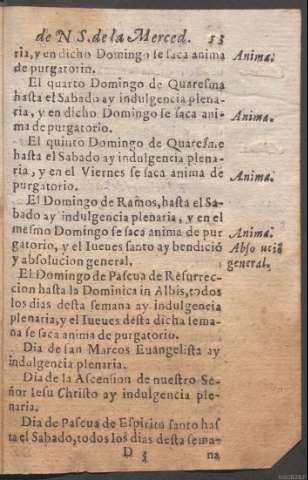 de N S. de la Merced. 53
ria, y en dicho Domingo se saca anima Anima.
de purgatorio.
El quarto Domingo de Quaresma
hasta el Sabado ay indulgencia plena-
ria, y en dicho Domingo se saca ani- Anima.
ma de purgatorio.
El quinto Domingo de Quaresma
hasta el Sabado ay indulgencia plena-
ria, y en el Viernes se saca anima de Anima.
purgatorio.
El Domingo de Ramos, hasta el Sa-
bado ay indulgencia plenaria, y en el
mesmo Domingo se saca anima de pur Anima.
gatorio, y el Iueves santo ay bendició Abso lució
y absolucion general, general.
El Domingo de Pascua de Resurrec-
cion hasta la Dominica in Albis, todos
los dias desta semana ay indulgencia
plenaria, y el Iueves desta dicha sema-
na se saca anima de purgatorio.
Dia de san Marcos Euangelista ay
indulgencia plenaria.
Dia de la Ascension de nuestro Se-
ñor Iesu Christo ay indulgencia ple-
naria.
Dia de Pascua de Espiritu santo has
ta el Sabado, todos los dias desta sema-
D na